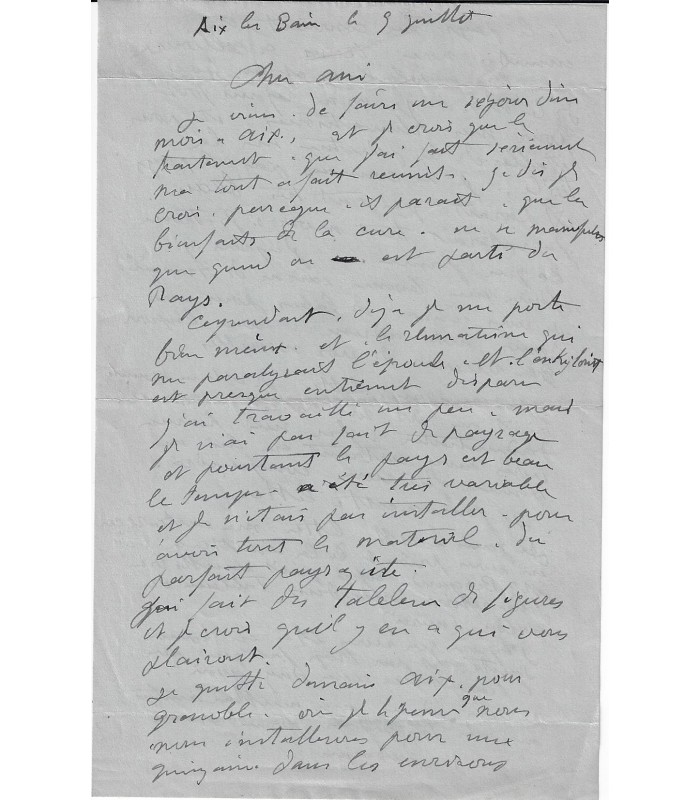 Aix les Bain le 9 juillet
Cher ami
Je viens de faire un séjour d'un
mois a aix, et je crois que le
traitement que j'ai fait serieusement
m'a tout a fait reussit. Je dis je
crois, parceque il parait que les
bienfaits de la cure ne se manifestes
que quand on est parti du
Pays.
Cependant, déja je me porte
bien mieux et le rhumatisme qui
me paralysait l'épaule et l'ankylosait
est presque entierment disparu
j'ai travaillé un peu, mais
je n'ai pas fait de paysage
et pourtant le pays est beau
le temps a été très variable
et je n'étais pas installer pour
avoir tout le materiel du
parfait paysagiste.
J'ai fait des tableau de figures
et je crois qu'il y en a qui vous
plairont.
Je quitte demain aix pour
grenoble où je pense que nous
nous installerons pour une
quinzaine dans les environs